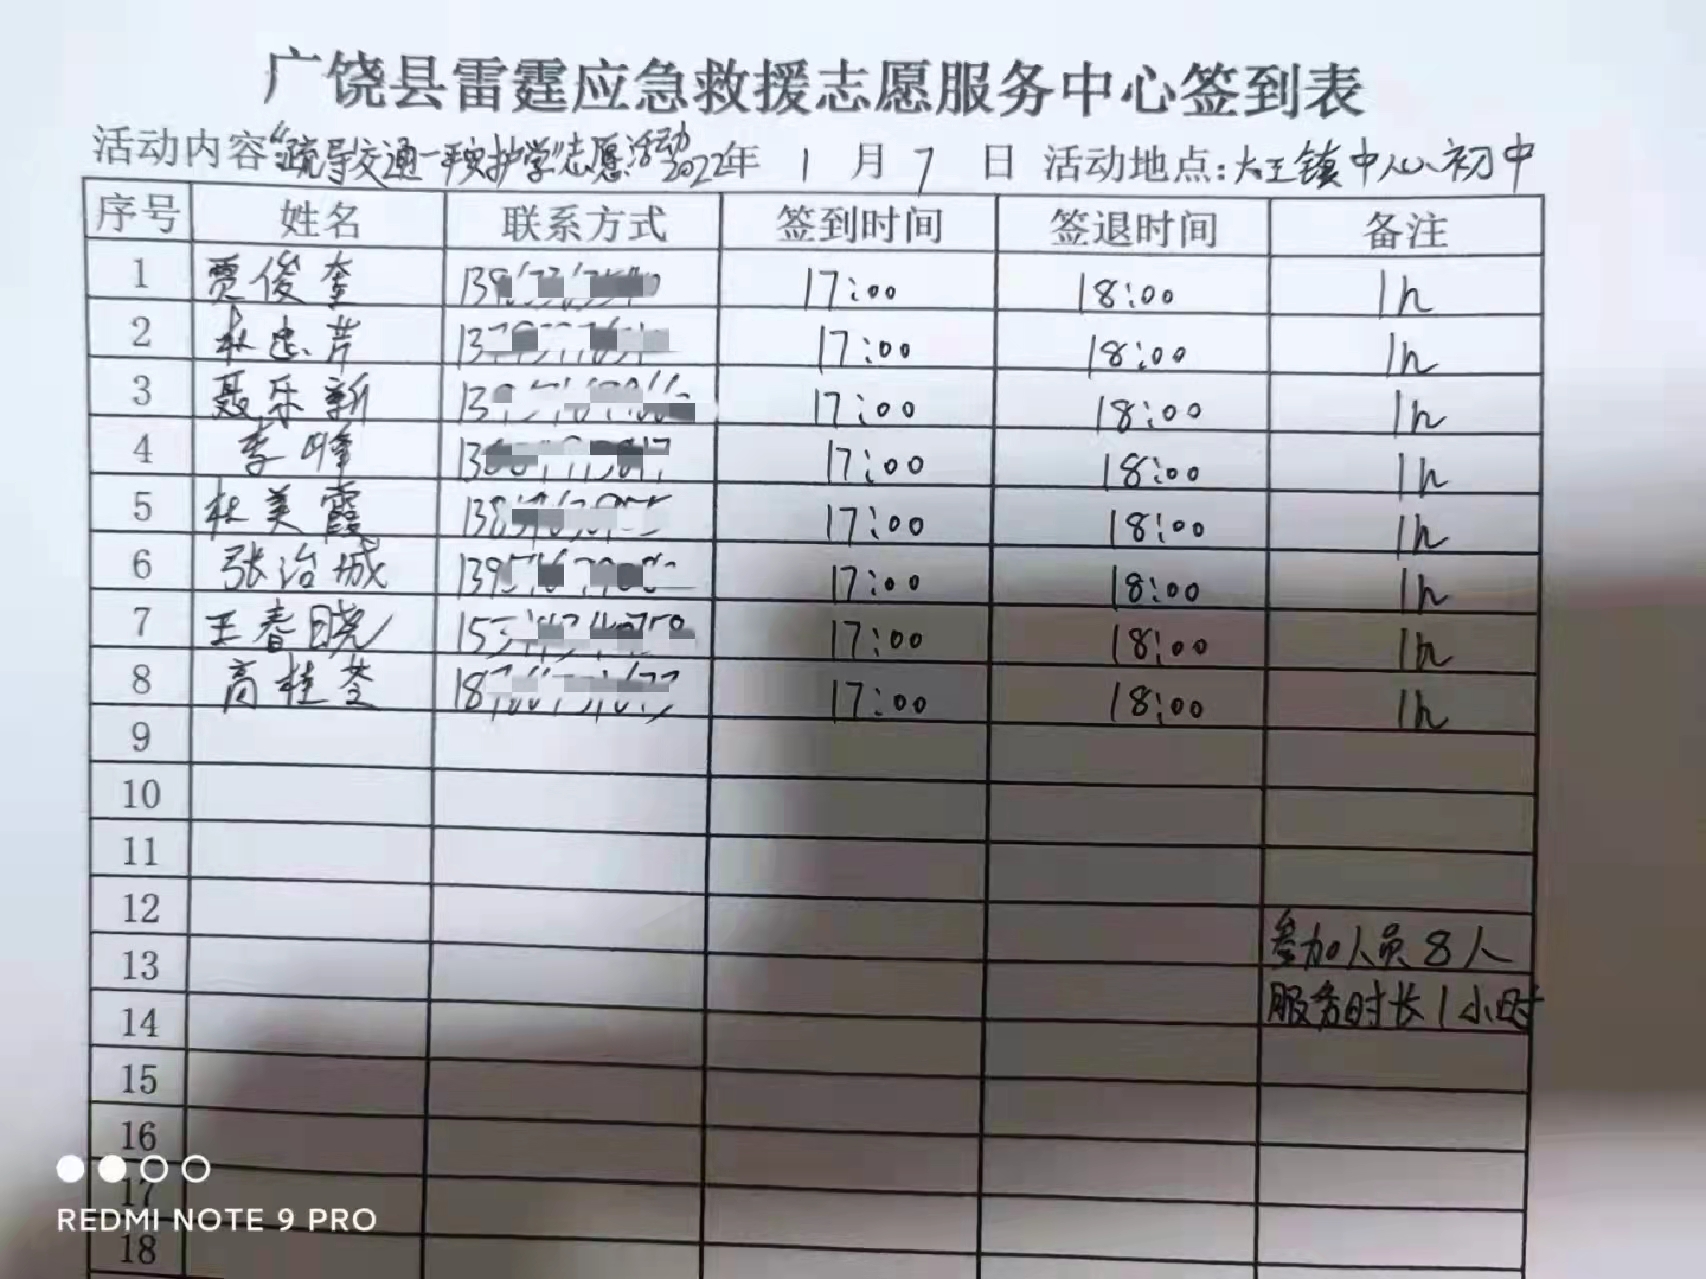 广饶县雷霆应急救援志愿服务中心签到表
活动内容“疏导交通一平安护学”志愿活动 2022年 1 月 7 日 活动地点:大王镇中心初中
序号 姓名 联系方式 签到时间 签退时间 备注
1 贾俊奎 17:00 18:00 1h
2 杜忠芹 17:00 18:00 1h
3 聂乐新 17:00 18:00 1h
4 李峰 17:00 18:00 1h
5 杜美霞 17:00 18:00 1h
6 张治城 17:00 18:00 1h
7 王春晓 17:00 18:00 1h
8 高桂荃 17:00 18:00 1h
9
10
11
12 参加人员8人
13 服务时长1小时
14
15
16
17
18
REDMI NOTE 9 PRO